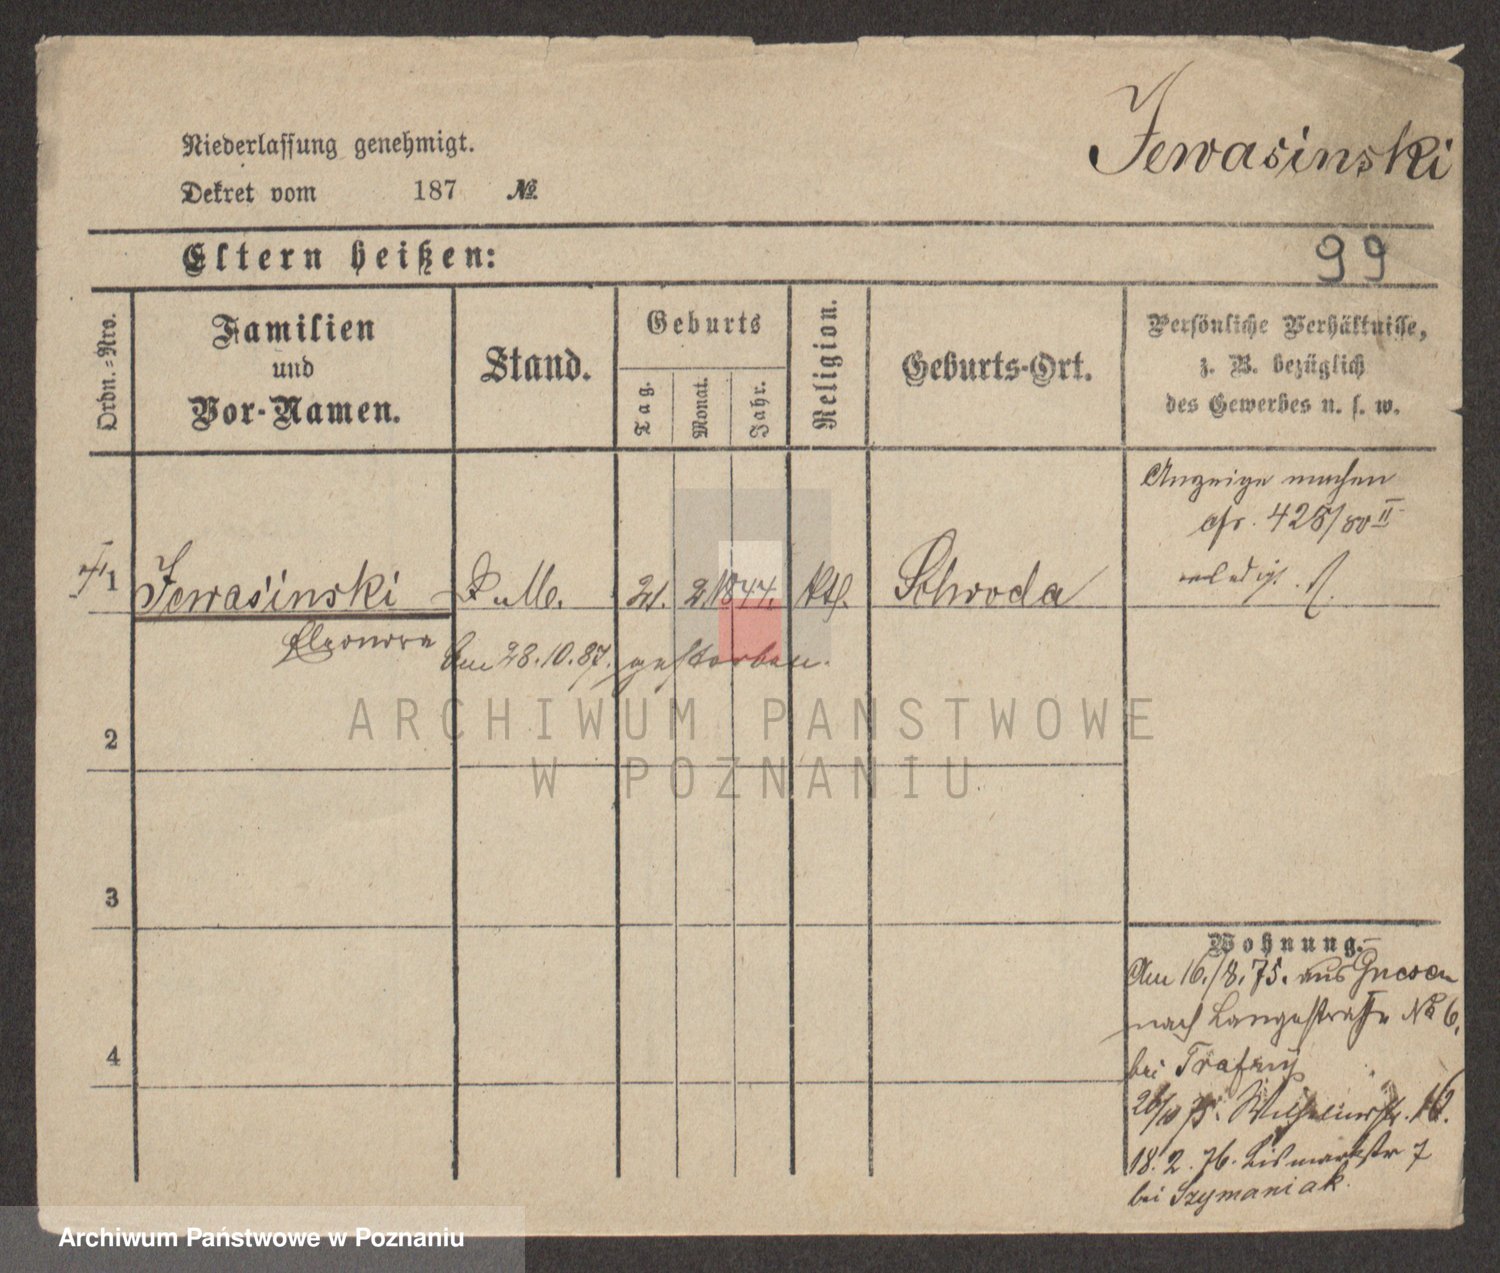 Jewasinski
Niederlassung genehmigt.
Dekret vom 187 №
Eltern heißen:
99
Ordn.-Nro.
Familien
und
Vor-Namen.
Stand.
Geburts
Tag.
Monat.
Jahr.
Religion.
Geburts-Ort.
Persönliche Verhältnisse,
z. B. bezüglich
des Gewerbes u. s. w.
Anzeige machen
cfr. 425/80 II
erledigt.
1 Jewasinski 21. 2. 1844. kth. Schroda
Eleonora
Am 28.10.87. gestorben.
2
3
4
Wohnung.
Am 16./8.75. aus Gnesen
nach Langestraße № 6.
bei
75. Wilhelmstr. 16.
18.2.76. Bismarkstr 7
bei Szymaniak.
ARCHIWUM PAŃSTWOWE
W POZNANIU
Archiwum Państwowe w Poznaniu